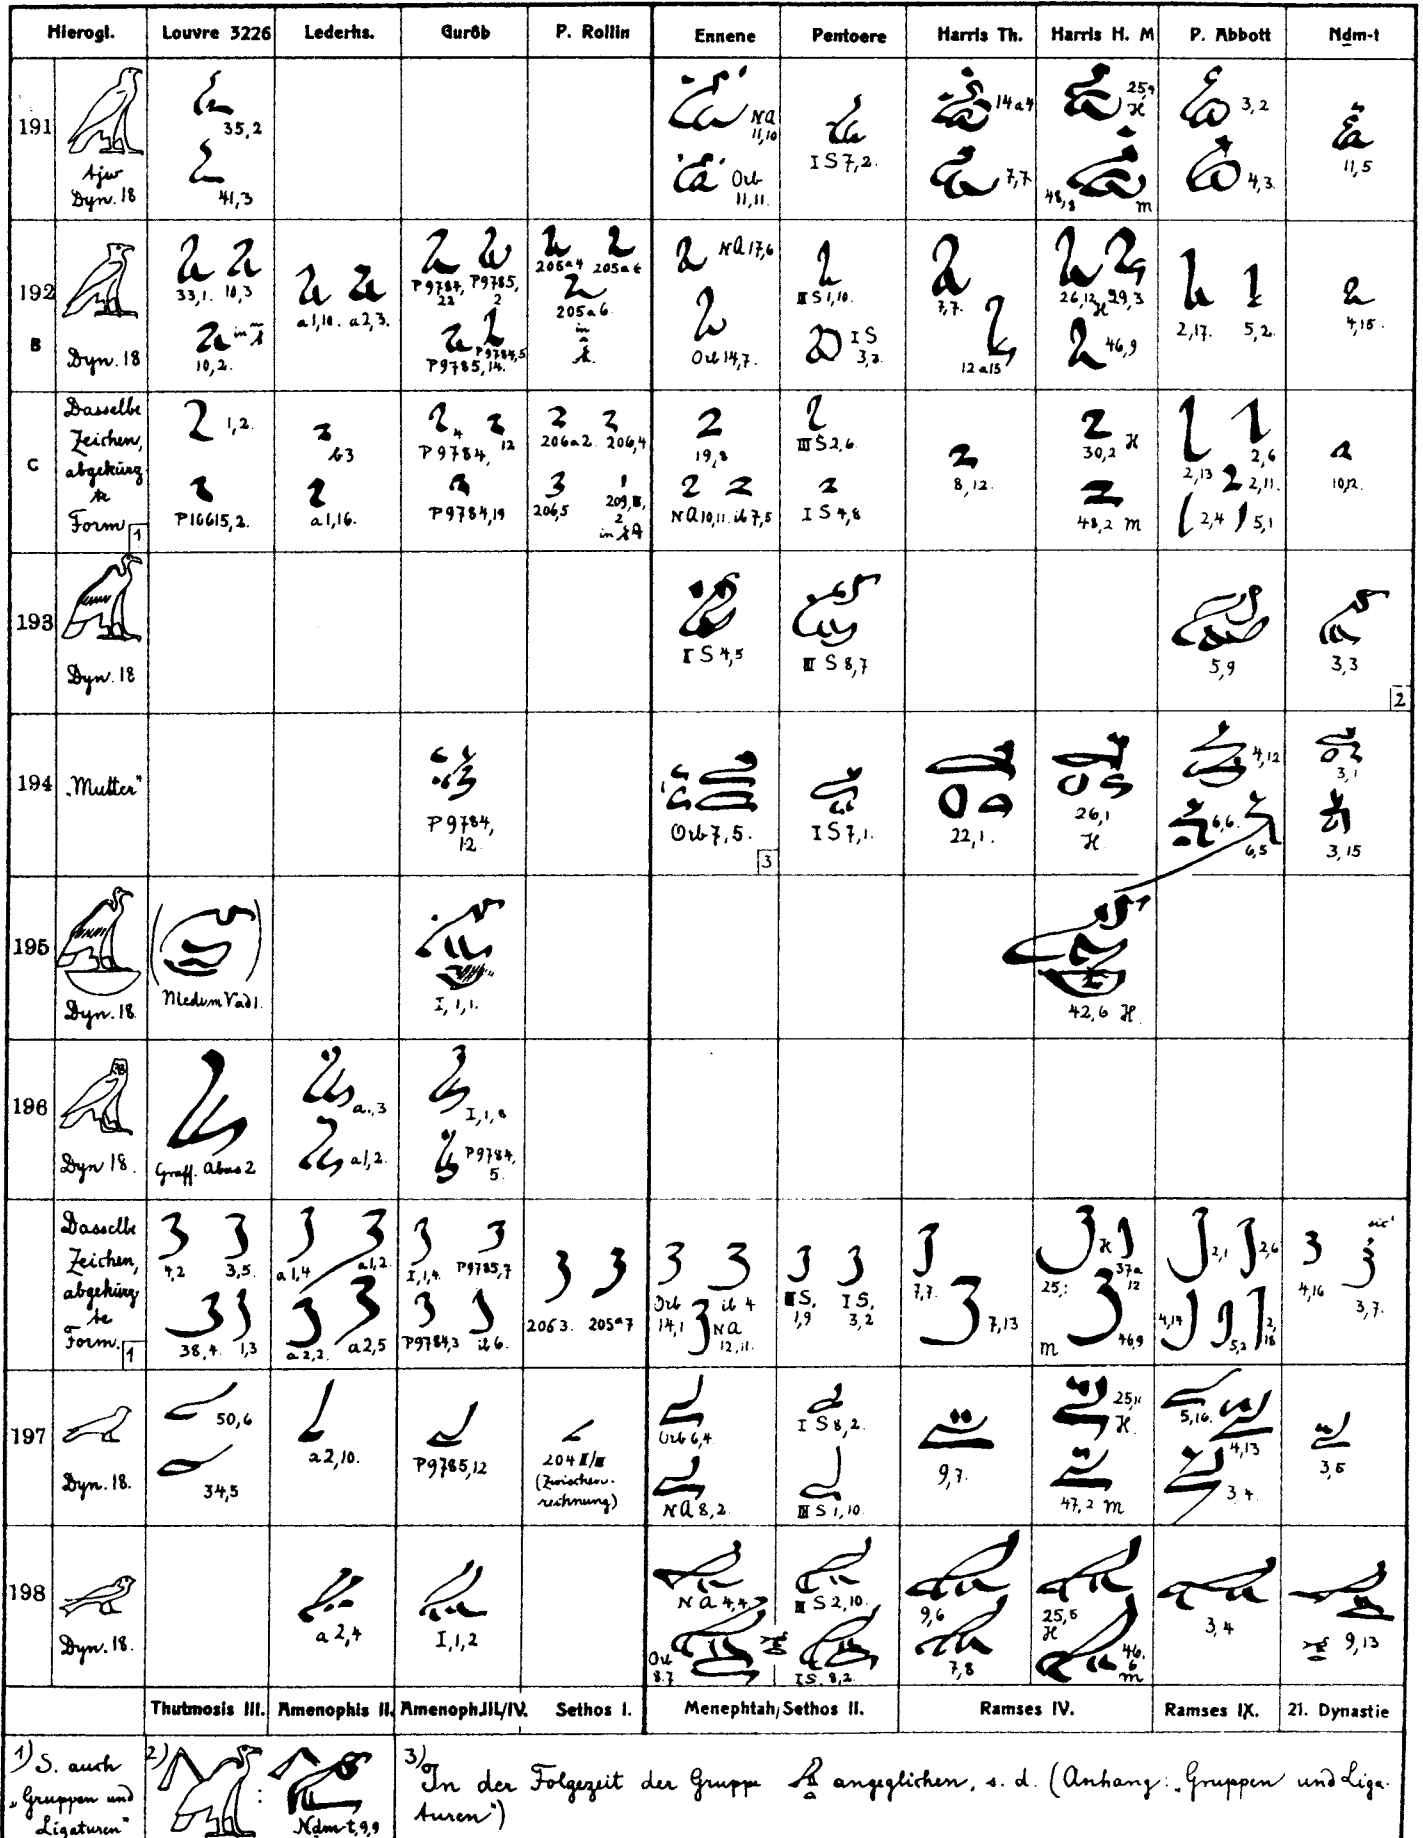 Hierogl. Louvre 3226 Lederhs. Gurôb P. Rollin Ennene Pentoere Harris Th. Harris H. M P. Abbott Nḏm-t
191
Dyn. 18
35,2
41,3
NA 11,10
Orb 11,11.
I S 7,2.
14a4
7,7
25,9 H
48,8 m
3,2
4,3
11,5
192 B
Dyn. 18
33,1. 10,3
10,2.
a1,10. a2,3.
P9784, 22 P9785, 2
P9785,14. P9784,5
206a4 205a6
205a6 in
NA 17,6
Orb 14,7.
III S 1,10.
I S 3,2.
7,7.
12a15
26,12 H 29,3
46,9
2,17. 5,2.
4,15.
C
Dasselbe
Zeichen,
abgekürz
te
Form 1
1,2.
P16615,2.
b3
a1,16.
P9784, 4 12
P9784,19
206a2. 206,4
206,5 209,II, 2 in
19,8
NA 10,11. ib 7,5
III S 2,6.
I S 4,8
8,12.
30,2 H
48,2 m
2,13 2,6
2,11.
2,4 5,1
10,12.
193
Dyn. 18
I S 4,5
III S 8,7
5,9
3,3
2
194 „Mutter"
P9784, 12.
Orb 7,5.
3
I S 7,1.
22,1.
26,1 H.
4,12
6,6. 6,5
3,1
3,15
195
Dyn. 18.
Medum Vad 1.
I, 1, 1.
42,6 H.
196
Dyn 18.
Graff. Abus 2
a.,3
a1,2.
I,1,8
P9784, 5.
Dasselbe
Zeichen,
abgekürz
te
Form. 1
4,2 3,5.
38,4. 1,3
a1,4 a1,2.
a2,2. a2,5
I,1,4. P9785,7
P9784,3 ib 6.
206 3. 205a7
Orb 14,1 ib 4
NA 12,11.
III S, 1,9 I S, 3,2
7,7.
7,13
25,: H 37a 12
m 46,9
2,1 2,6
4,14 5,2 2, 18
4,16 sic!
3,7.
197
Dyn. 18.
50,6
34,5
a2,10.
P9785,12
204 II/III
(Zwischen-
rechnung)
Orb 6,4.
NA 8,2.
I S 8,2.
III S 1,10.
9,7.
25,11 H.
47,2 m
5,16. 4,13
3,4.
3,5
198
Dyn. 18.
a2,4
I,1,2
NA 4,4
Orb 8.7
III S 2,10.
I S. 8,2.
9,6
7,8
25,5 H
46. 6 m
3,4
9,13
Thutmosis III. Amenophis II. Amenoph.III/IV. Sethos I. Menephtah/Sethos II. Ramses IV. Ramses IX. 21. Dynastie
1) S. auch
„Gruppen und
Ligaturen"
2) : Nḏm-t,9,9
3) In der Folgezeit der Gruppe angeglichen, s. d. (Anhang: „Gruppen und Liga-
turen")